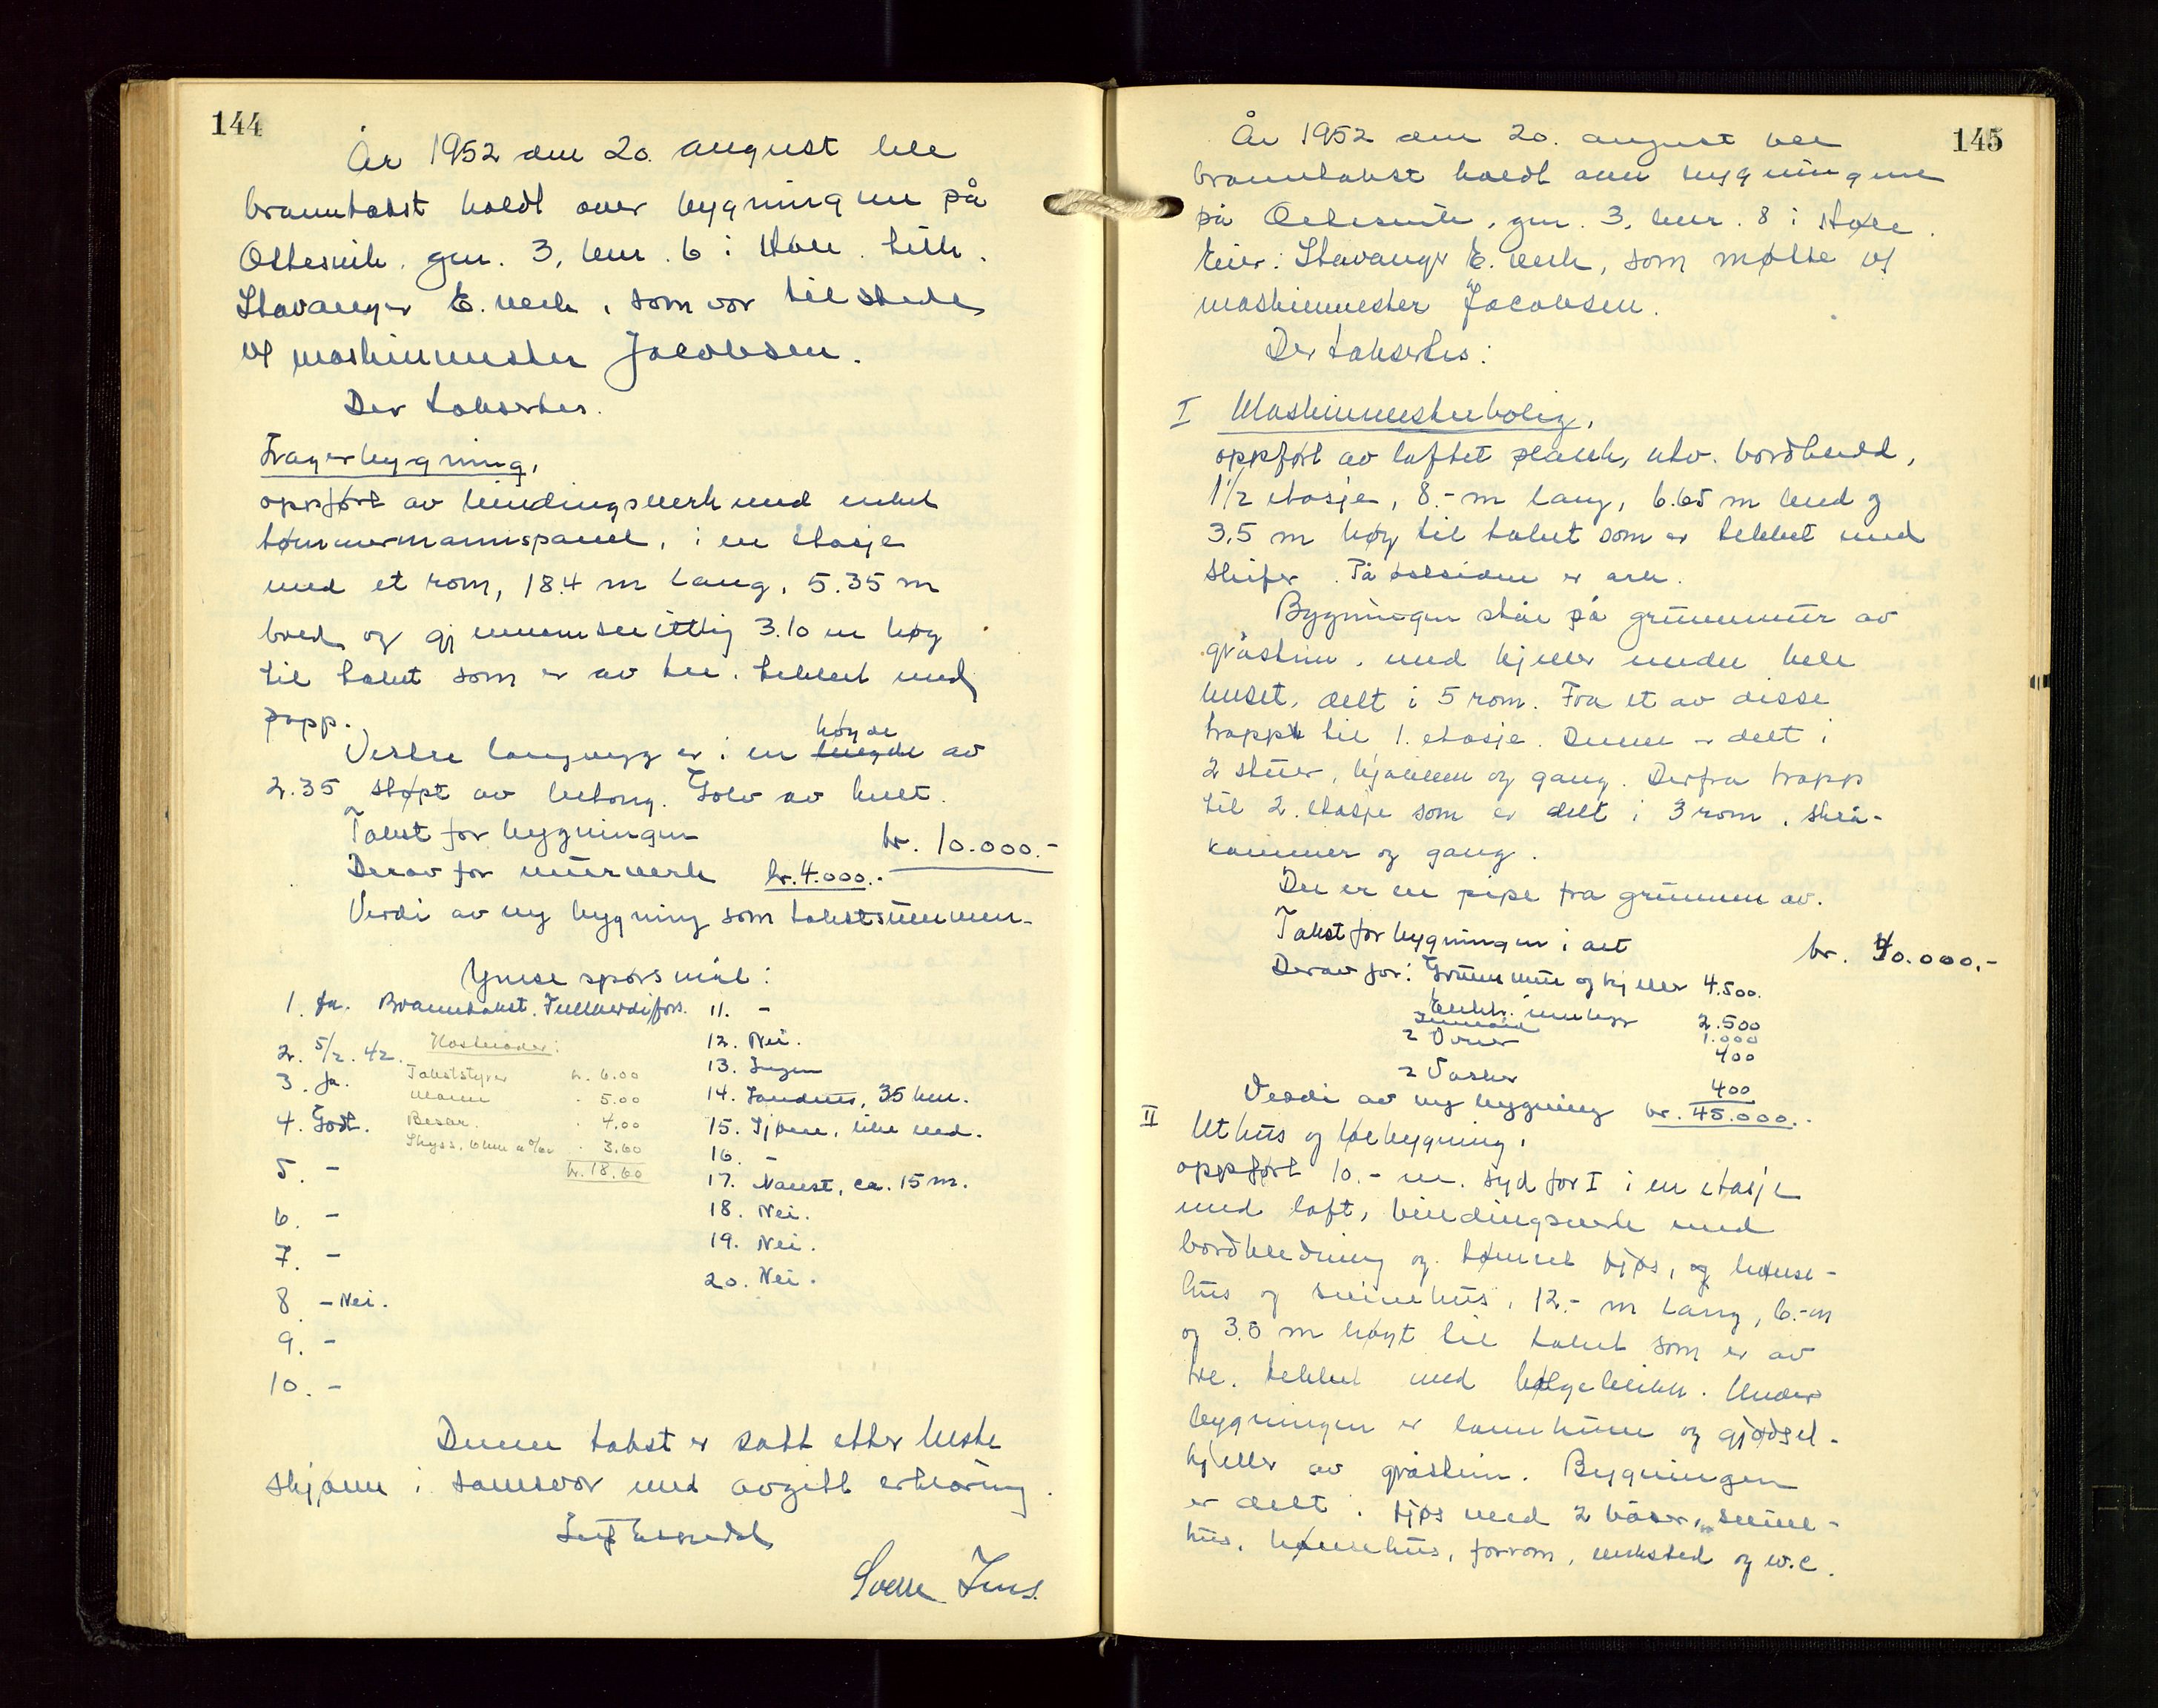 144
År 1952 den 20. august ble
branntakst holdt over bygningene på
Oltesvik, gnr. 3, bnr. 6 i Høle. tilh.
Stavanger E. verk, som var tilstede
v/ maskinmester Jacobsen.
Der taksertes.
Lagerbygning,
oppført av bindingsverk med enkel
tømmermannspanel, i en etasje
med et rom, 18.4 m lang, 5.35 m
bred og gjennomsnittlig 3.10 m høg
til taket som er av tre. tekket med
papp.
Vestre langvegg er i en høyde av
2.35 støpt av betong. Golv av kult.
Takst for bygningen kr. 10.000.-
Derav for murverk kr. 4.000.-
Verdi av ny bygning som takstsummen.
Ymse spørsmål:
1. Ja. Branntakst. Fullverdifors.
2. 5/2. 42.
3. Ja.
4. Godt.
5. -
6. -
7. -
8. - Nei.
9. -
10. -
Kostnader:
Takststyrer kr. 6.00
Mann - 5.00
Besør. - 4.00
Skyss. 6 km a 0/60 - 3.60
kr. 18.60
11. -
12. Nei.
13. Ingen
14. Sandnes, 35 km.
15. Sjøen, like ved.
16. -
17. Naust, ca. 15 m.
18. Nei.
19. Nei.
20. Nei.
Denne takst er satt etter beste
skjønn i samsvar med avgitt erklæring.
145
År 1952 den 20. august ble
branntakst holdt over bygningene
på Oltesvik, gnr. 3, bnr. 8 i Høle.
Eier: Stavanger E. verk, som møtte v/
maskinmester Jacobsen.
Der taksertes:
I Maskinmesterbolig,
oppført av laftet plank, utv. bordkledd,
1 1/2 etasje, 8.- m lang, 6.65 m bred og
3.5 m høy til taket som er tekket med
skifer. På østsiden er ark.
Bygningen står på grunnmur av
gråstein, med kjeller under hele
huset, delt i 5 rom. Fra et av disse
trapp til 1. etasje. Denne er delt i
2 stuer, kjøkken og gang. Derfra trapp
til 2. etasje som er delt i 3 rom, skrå-
kammer og gang.
Der er en pipe fra grunnen av.
Takst for bygningen i alt kr. 40.000.-
Derav for: Grunnmur og kjeller 4.500.
Elektr. innlegg 2.500
1.000
2 Ovner 400
2 Vasker 400
Verdi av ny bygning kr. 45.000.-
II Uthus og løebygning,
oppført 10.- m. syd for I i en etasje
med loft, bindingsverk med
bordkledning og tømret fjøs, og hønse-
hus og svinehus, 12.- m lang, 6.- m
og 3.5 m høgt til taket som er av
tre. tekket med bølgeblikk. Under
bygningen er landkum og gjødsel-
kjeller av gråstein. Bygningen
er delt i fjøs med 2 båser, svine-
hus, hønsehus, forrom, verksted og w.c.